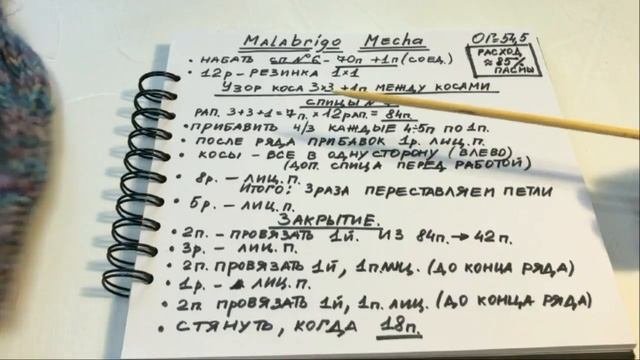 Malabrigo Mecha
ОГ=54,5
РАСХОД
≈85%
ПАСМЫ
• НАБРАТЬ СП №6 - 70п +1п (СОЕД.)
• 12р - РЕЗИНКА 1x1
УЗОР КОСА 3x3 +1п МЕЖДУ КОСАМИ
СПИЦЫ
РАП. 3+3+1=7п. x 12 РАП. = 84п.
• ПРИБАВИТЬ Ч/З КАЖДЫЕ 4÷5п ПО 1п.
• ПОСЛЕ РЯДА ПРИБАВОК 1р. ЛИЦ.П.
• КОСЫ - ВСЕ В ОДНУ СТОРОНУ (ВЛЕВО)
(ДОП. СПИЦА ПЕРЕД РАБОТОЙ)
• 8р. - ЛИЦ.П.
ИТОГО: 3 РАЗА ПЕРЕСТАВЛЯЕМ ПЕТЛИ
• 5р. - ЛИЦ.П.
ЗАКРЫТИЕ.
• 2п. - ПРОВЯЗАТЬ 1й. ИЗ 84п. → 42п.
• 3р. - ЛИЦ.П.
• 2п. ПРОВЯЗАТЬ 1й, 1п ЛИЦ. (ДО КОНЦА РЯДА)
• 1р. - ЛИЦ.П.
• 2п ПРОВЯЗАТЬ 1й, 1п. ЛИЦ. (ДО КОНЦА РЯДА)
• СТЯНУТЬ, КОГДА 18п.